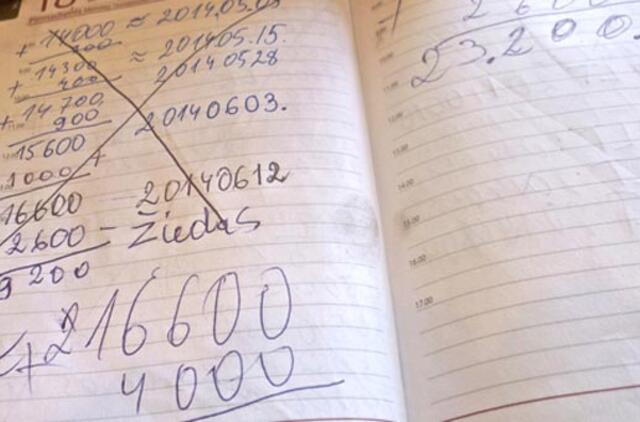 + 14000 ≈ 2014.05.05
300
14300 ≈ 201405.15.
+ 400 20140528
14700
+ 900 20140603.
15600
1000 +
16600 - 20140612
2600 - Žiedas
9200
+ 216600
4000
2600
23.200.
11.00
12.00
13.00
14.00
15.00
16.00
17.00